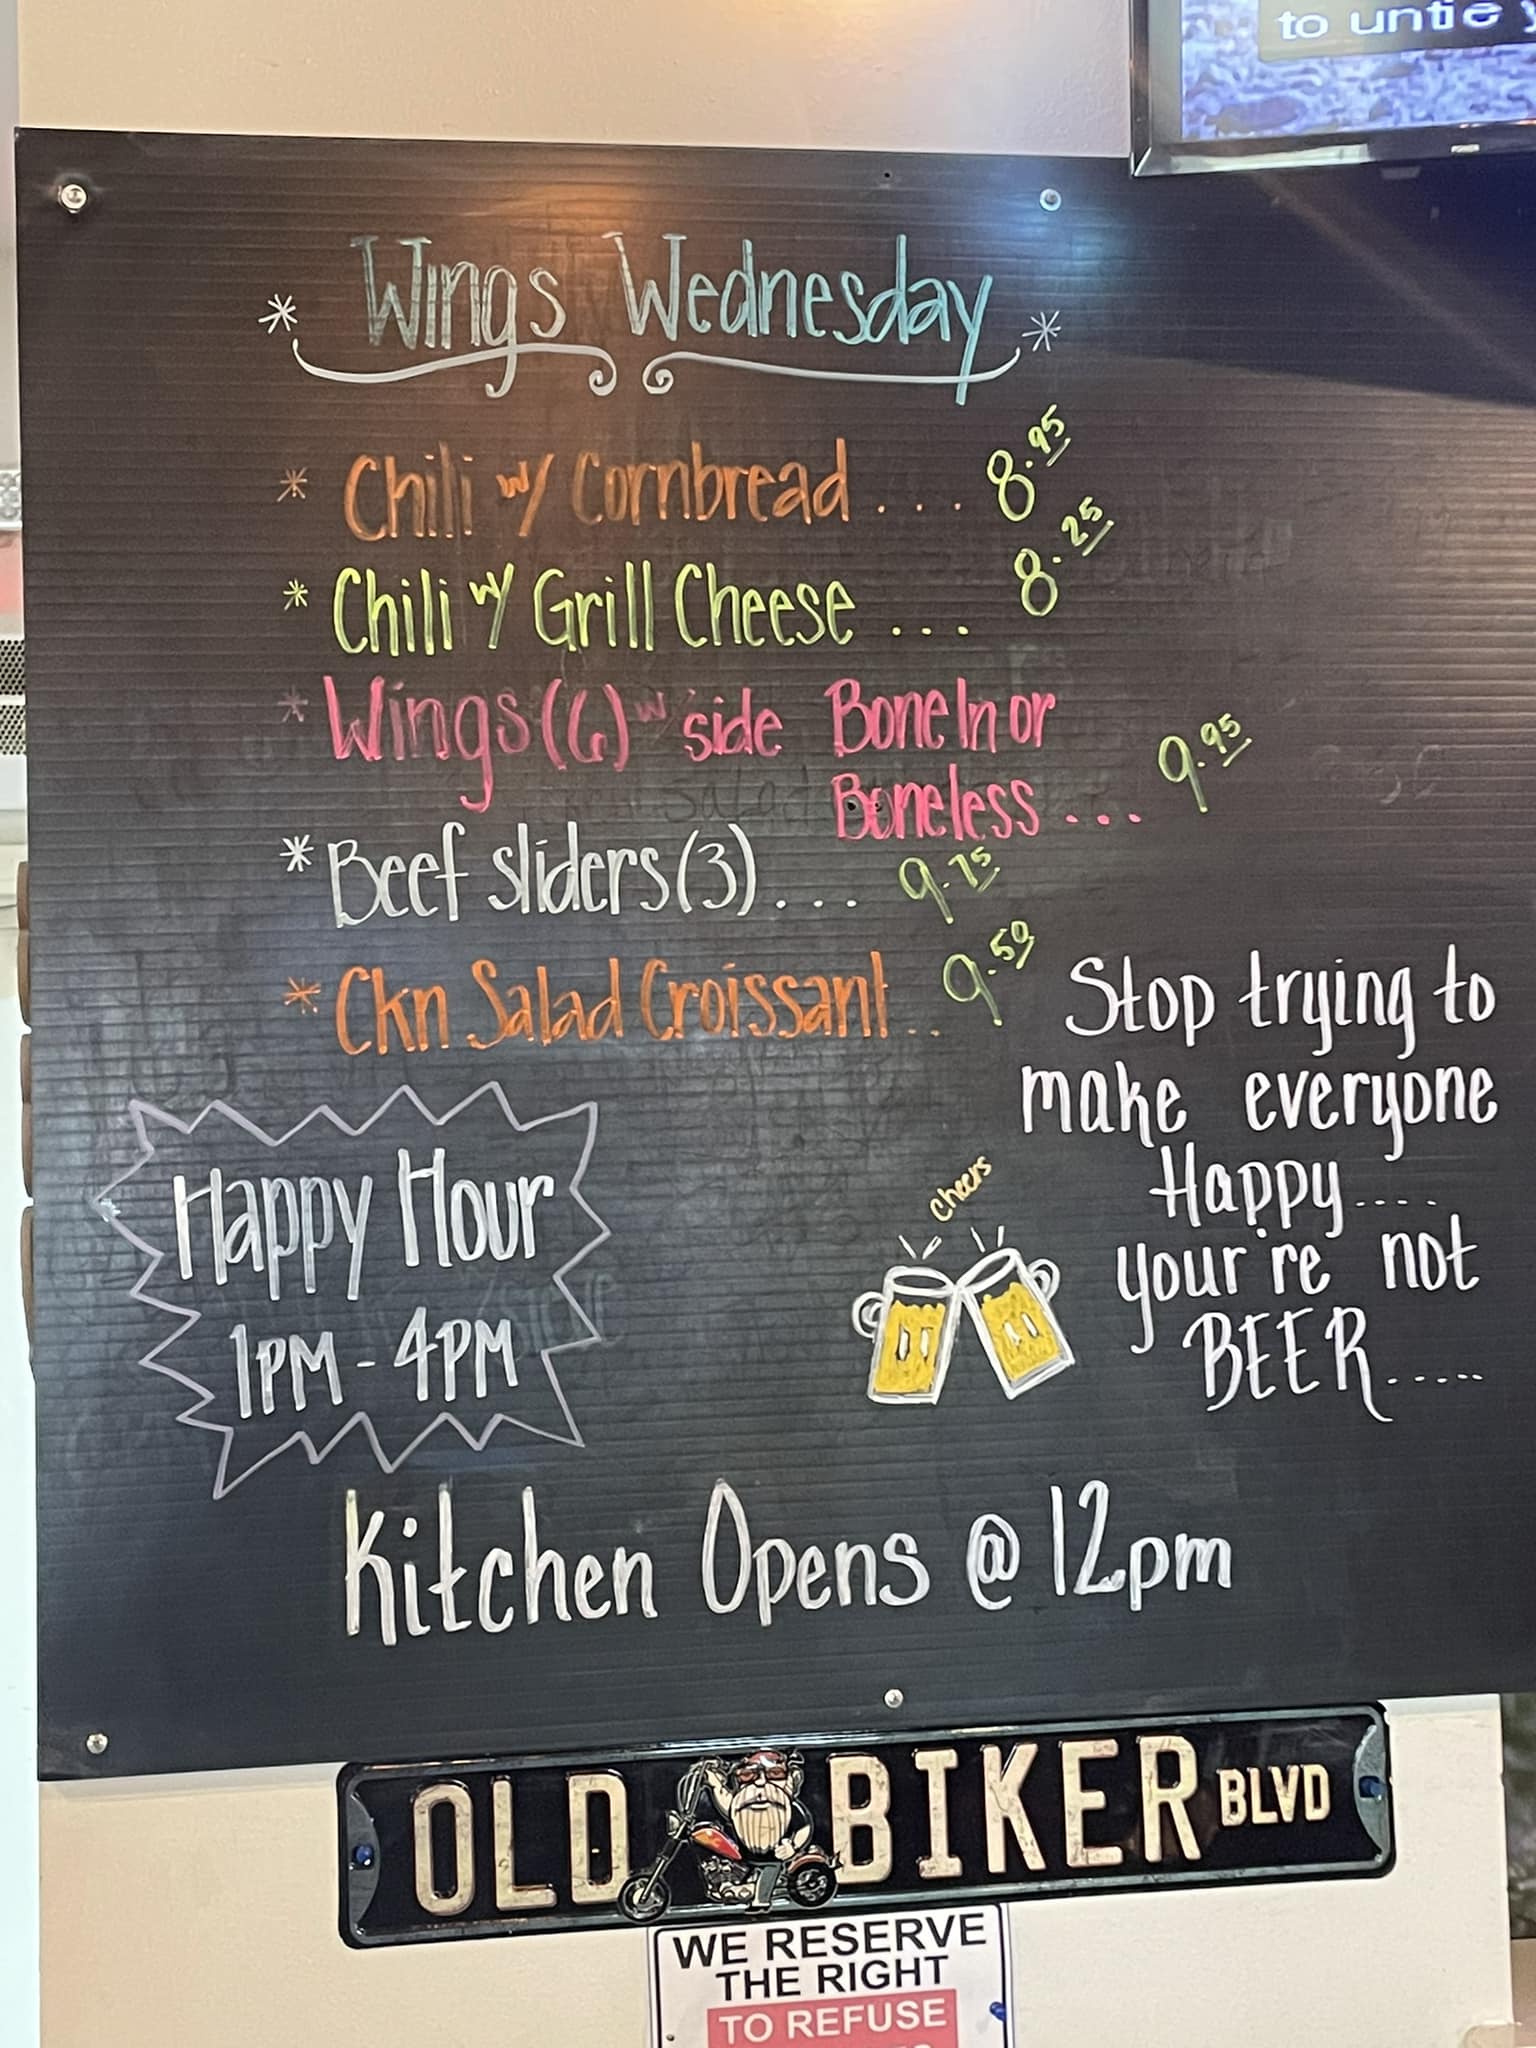 to untie
* Wings Wednesday *
* Chili w/ Cornbread .... 8.95
* Chili w/ Grill Cheese ... 8.25
* Wings (6) w/ side Bone In or
Boneless ... 9.95
* Beef sliders (3) ... 9.75
* Ckn Salad Croissant .. 9.50
Stop trying to
make everyone
Happy ....
your're not
BEER .....
Cheers
Happy Hour
1PM - 4PM
Kitchen Opens @ 12pm
OLD BIKER BLVD
WE RESERVE
THE RIGHT
TO REFUSE